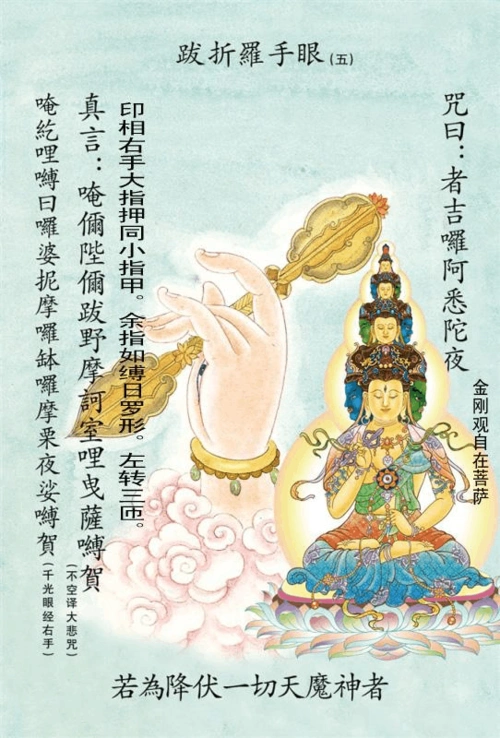 跋折羅手眼(五)
咒曰：者吉囉阿悉陀夜
金刚观自在菩萨
印相右手大指押同小指甲。余指如缚日罗形。左转三匝。
真言：唵儞陛儞跋野摩訶室哩曳薩嚩賀(不空译大悲咒)
唵紇哩嚩日囉婆抳摩囉鉢囉摩栗夜娑嚩賀(千光眼经右手)
若為降伏一切天魔神者